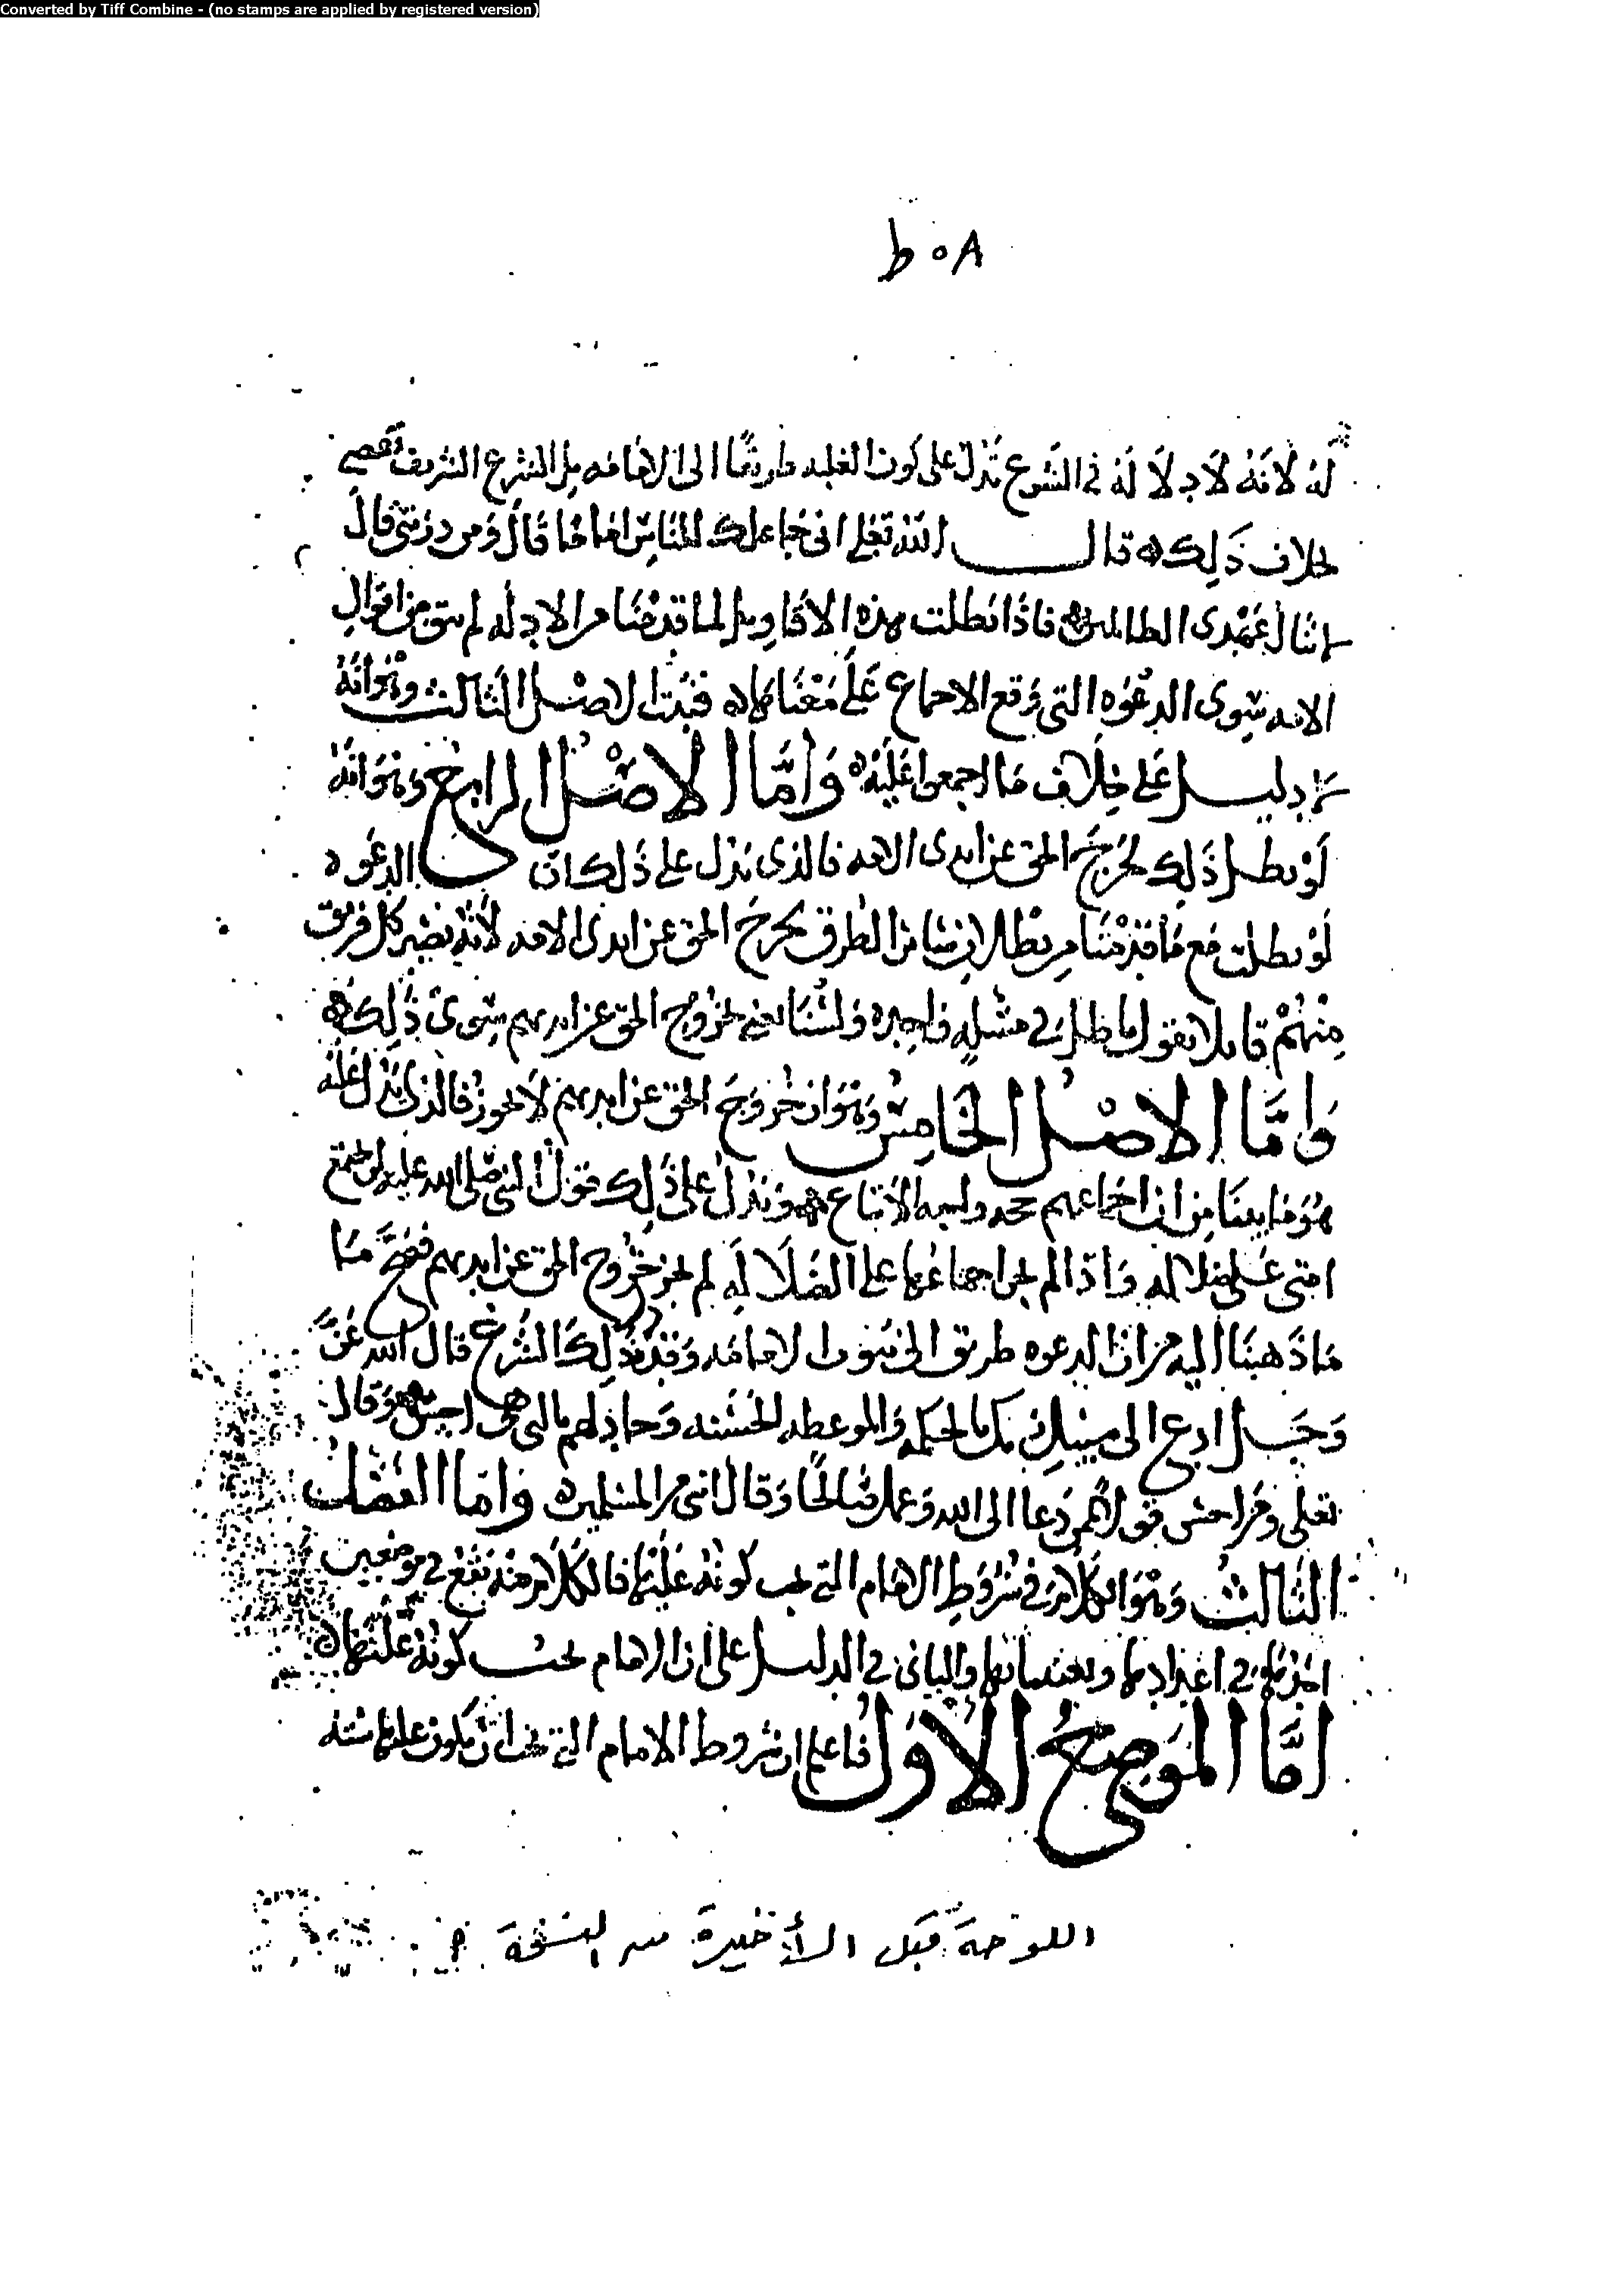 Converted by Tiff Combine - (no stamps are applied by registered version)
٨٥ ط
له لانه لا دلاله في الشرع تدل على كون الغلبه طريقا الى الامامه بل الشرع الشريف يقضي
بخلاف ذلك ه قال الله تعلى اني جاعلك للناس اماما قال ومن ذريتي قال
لا ينال عهدي الظالمين ه فاذا بطلت هذه الاقاويل لما قدمنا من الادله لم يبق من اقوال
الامه سوى الدعوه التي وقع الاجماع على معناها ه فثبت الاصل الثالث وهو انه
لا دليل على خلاف ما اجمعوا عليه ه واما الاصل الرابع وهو انه
لو بطل ذلك لخرج الحق عن ايدي الامه فالذي يدل على ذلك ان الدعوه
لو بطلت مع ما قدمنا من بطلان سائر الطرق لخرج الحق عن ايدي الامه لانه يصير كل فريق
منهم قايلا بقول باطل في مسئله واحده ولسنا نعني بخروج الحق عن ايديهم سوى ذلك ه
واما الاصل الخامس وهو ان خروج الحق عن ايديهم لا يجوز فالذي يدل عليه
هو ما بينا من ان اجماعهم حجه واجبه الاتباع ه ويدل على ذلك قول النبي صلى الله عليه لن تجتمع
امتي على ضلاله واذا لم يجز اجماعها على الضلاله لم يجز خروج الحق عن ايديهم فصح
ما ذهبنا اليه من ان الدعوه طريق الى ثبوت الامامه وقد ذلك الشرع قال الله عز
وجل ادع الى سبيل ربك بالحكمه والموعظه الحسنه وجادلهم بالتي هي احسن ه وقال
تعلى ومن احسن قولا ممن دعا الى الله وعمل صالحا وقال انني من المسلمين ه واما الفصل
الثالث وهو الكلام في شروط الامام التي يجب كونه عليها فالكلام منه يقع في موضعين
احدهما في اعدادها وبعينها والثاني في الدليل على ان الامام يجب كونه عليها ه
اما الموضع الاول فاعلم ان شروط الامام التي يجب ان يكون عليها سته
اللوحة قبل الأخيرة من النسخة